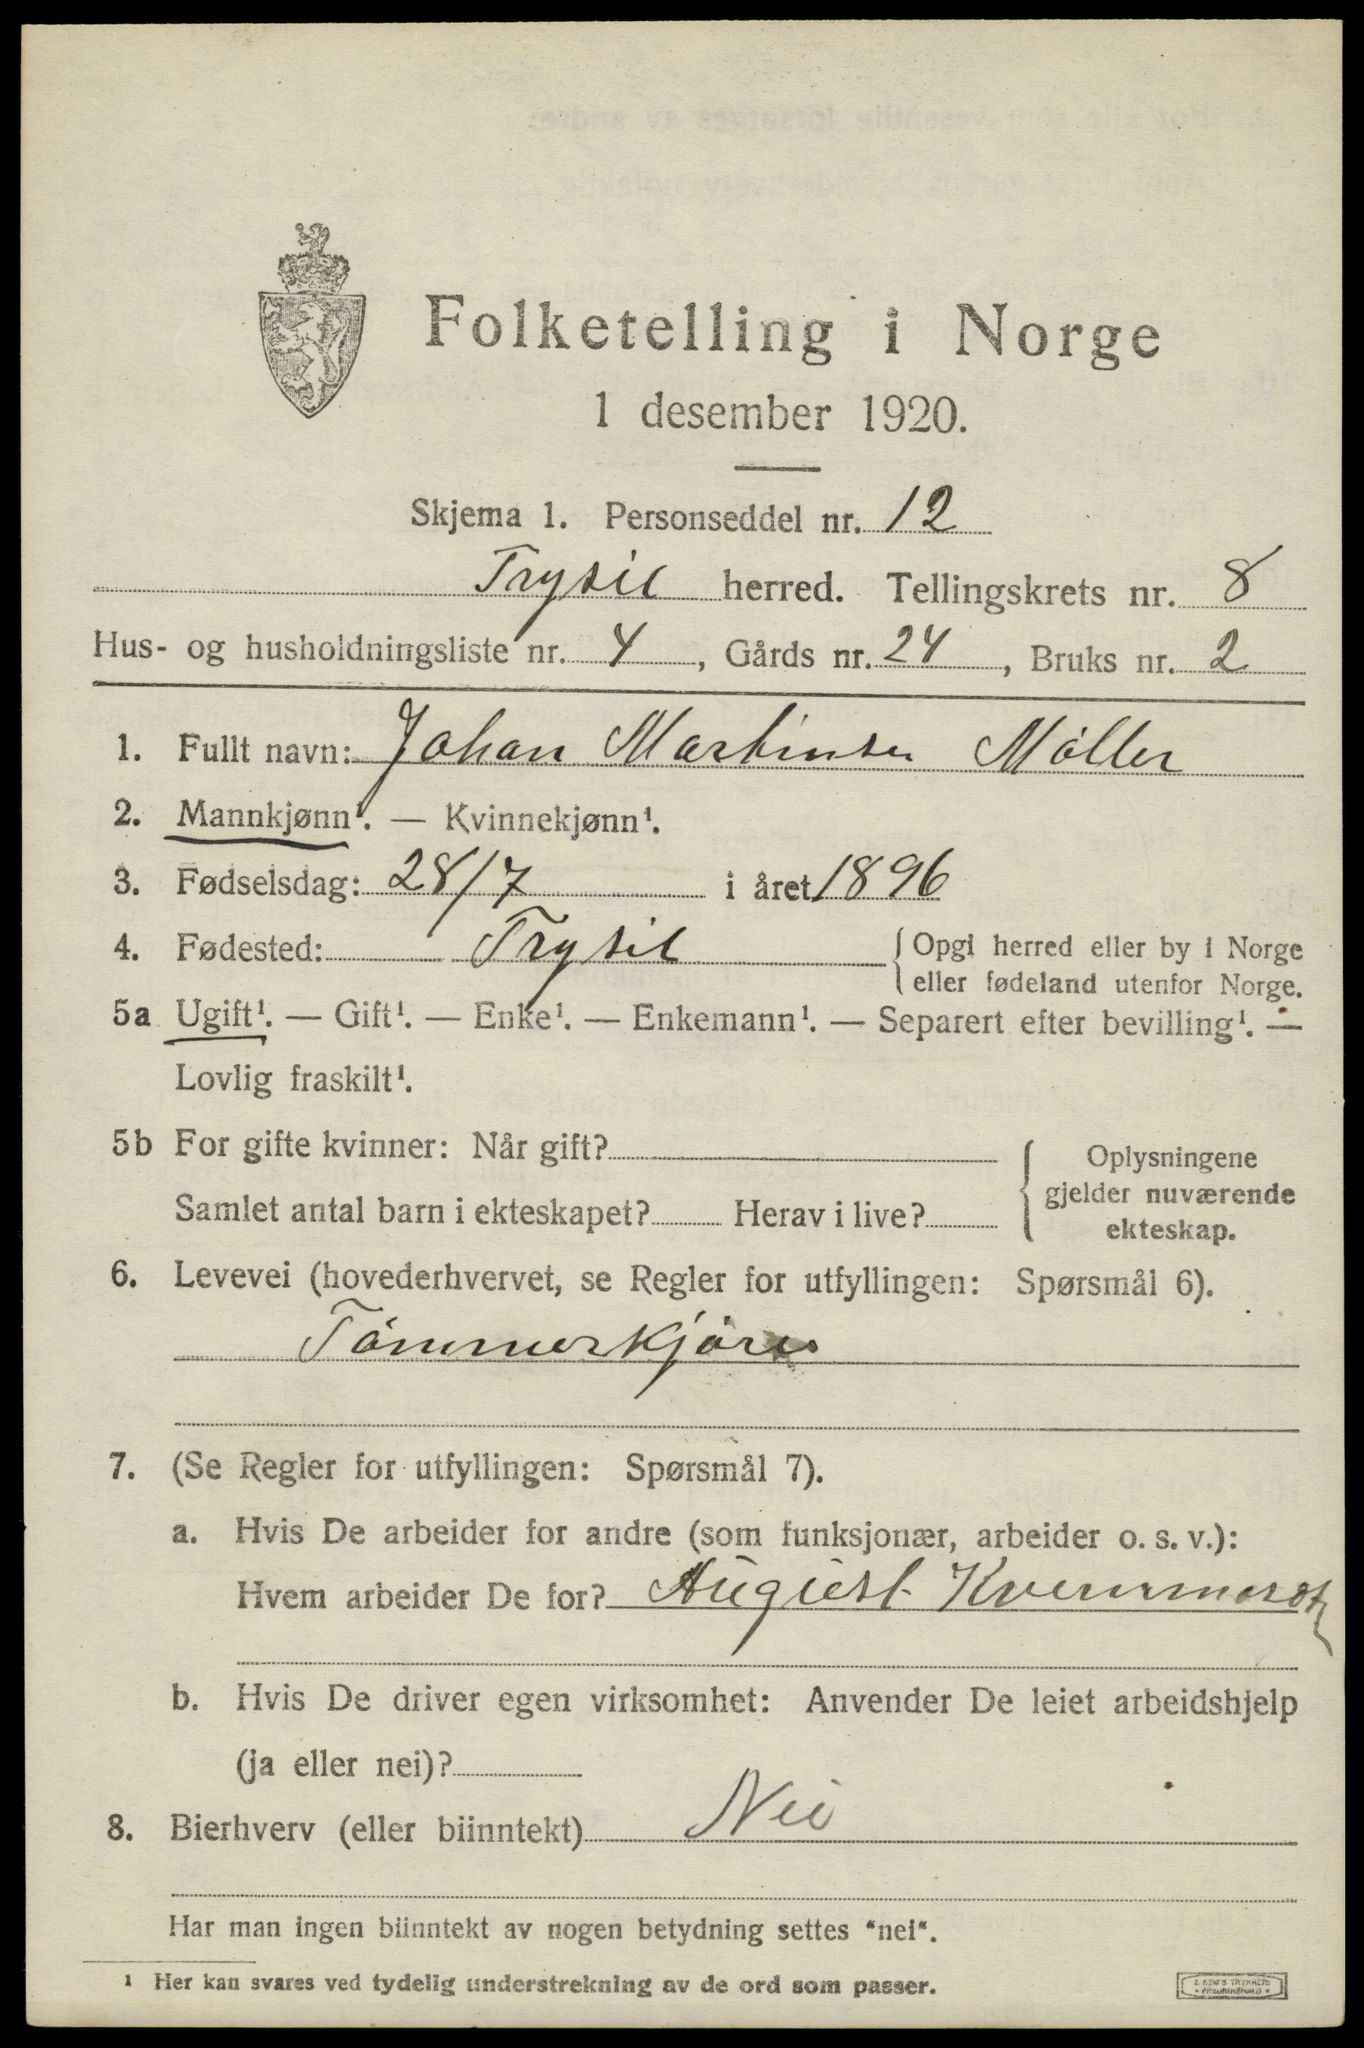 Folketelling i Norge
1 desember 1920.
Skjema 1. Personseddel nr. 12
Trysil herred. Tellingskrets nr. 8
Hus- og husholdningsliste nr. 4, Gårds nr. 24, Bruks nr. 2
1. Fullt navn: Johan Martinsen Møller
2. Mannkjønn¹. — Kvinnekjønn¹.
3. Fødselsdag: 28/7 i året 1896
4. Fødested: Trysil {Opgi herred eller by i Norge
eller fødeland utenfor Norge.
5a Ugift¹. — Gift¹. — Enke¹. — Enkemann¹. — Separert efter bevilling¹. —
Lovlig fraskilt¹.
5b For gifte kvinner: Når gift?
Samlet antal barn i ekteskapet? Herav i live?
Oplysningene
gjelder nuværende
ekteskap.
6. Levevei (hovederhvervet, se Regler for utfyllingen: Spørsmål 6).
Tømmerkjører
7. (Se Regler for utfyllingen: Spørsmål 7).
a. Hvis De arbeider for andre (som funksjonær, arbeider o. s. v.):
Hvem arbeider De for? August
b. Hvis De driver egen virksomhet: Anvender De leiet arbeidshjelp
(ja eller nei)?
8. Bierhverv (eller biinntekt) Nei
Har man ingen biinntekt av nogen betydning settes "nei".
¹ Her kan svares ved tydelig understrekning av de ord som passer.